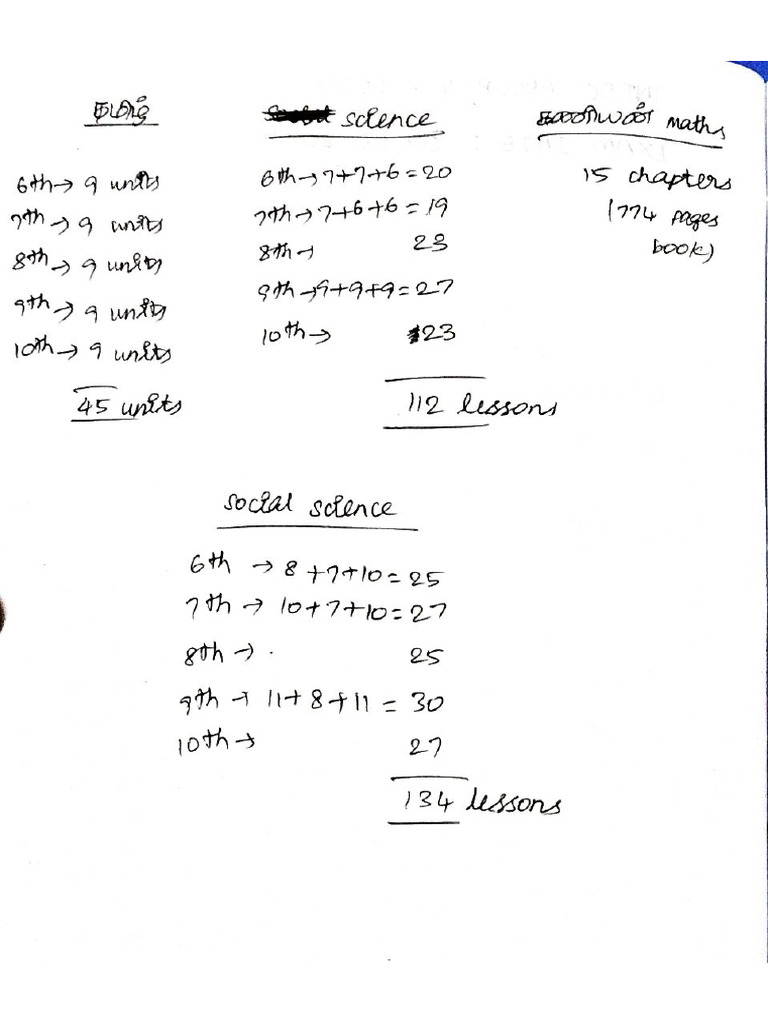 தமிழ்
6th → 9 units
7th → 9 units
8th → 9 units
9th → 9 units
10th → 9 units
45 units
science
6th → 7+7+6 = 20
7th → 7+6+6 = 19
8th → 23
9th → 9+9+9 = 27
10th → 23
112 lessons
கணியன் maths
15 chapters
(774 pages
book)
social science
6th → 8+7+10 = 25
7th → 10+7+10 = 27
8th → 25
9th → 11+8+11 = 30
10th → 27
134 lessons